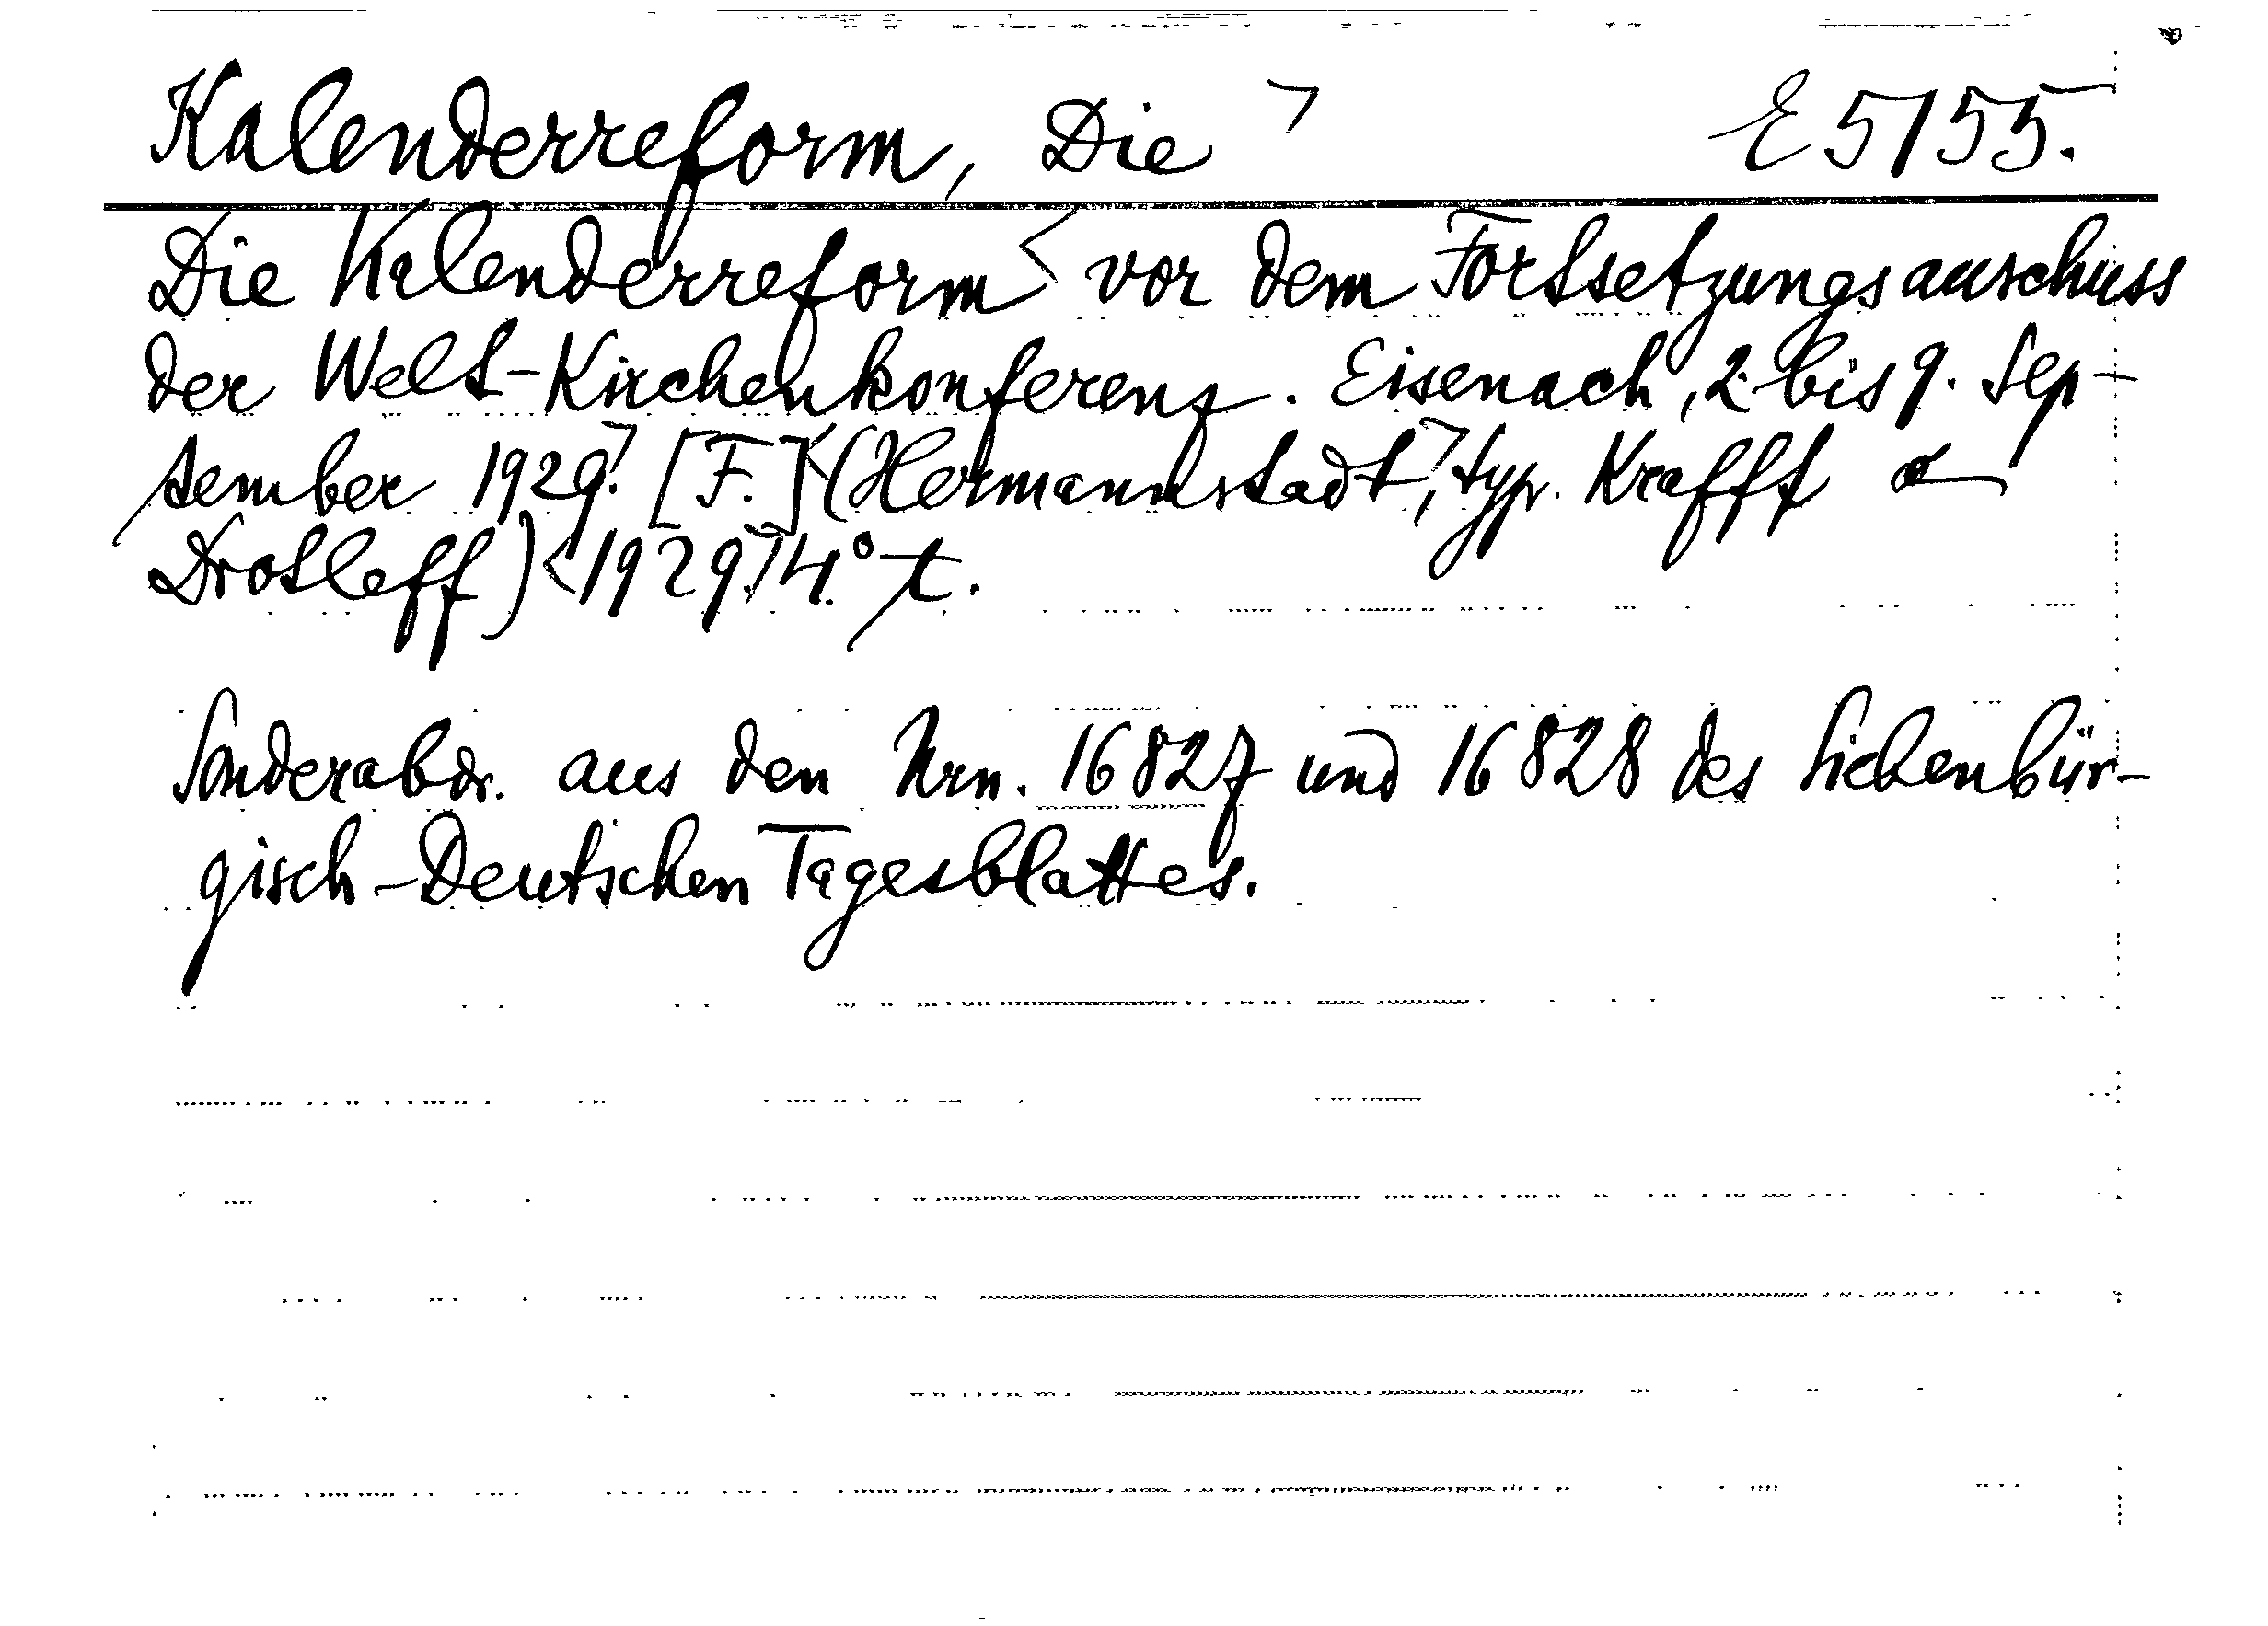 Kalenderreform, Die ⌝ E 5155.
Die Kalenderreform < vor dem Fortsetzungsauschuss
der Welt-Kirchenkonferenz. Eisenach, 2. bis 9. Sep-
tember 1929.⌝ [F.] < (Hermannstadt,⌝ typ. Krafft &
Drotleff) < 1929.⌝ 4° t.
Sonderabdr. aus den Nrn. 16827 und 16828 des Siebenbür-
gisch-Deutschen Tagesblattes.